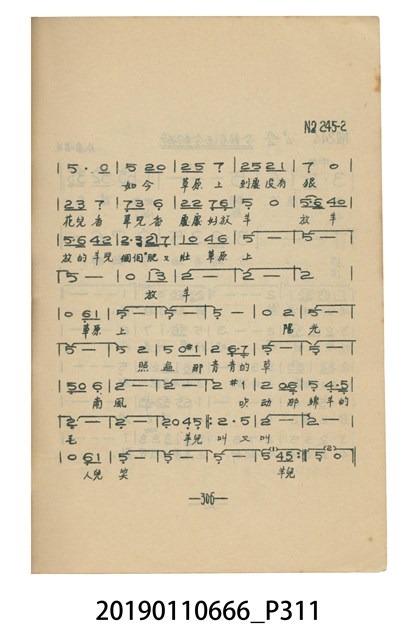 № 245-2
| 5 · 0 | 5 20 | 25 7 | 25 21 | 7 0 |
如今 草原上 到處沒有 狼
| 23 7 | 73 6 | 22 76 | 5 0 | 56 40 |
花兒香 草兒香 處處好放 羊 放羊
| 56 42 | 2·327 | 10 46 | 5 — | 5 — |
放的羊兒 個個肥又 壯 草原 上
| 5 — | 0 13 | 2 — | 2 — | 2 — |
放 羊
| 0 61 | 5 — | 5 — | 5 — | 02 | 5 — |
草原 上 陽 光
| 5 — | 5 2 | 50#1 | 2 67 | 5 — | 5 — |
照遍 那青青的草
| 50 6 | 2 — | 2 — | 2 #1 | 206 | 5 45 |
南風 吹动那綿羊的
| 2 — | 2 — | 2045 |: 2·5 | 2 — | 2 — |
毛 羊兒 叫又叫
| 0 61 | 5 — | 5 — | 5 — | 5 45 :| 5 0 |
人兒 笑 羊兒
—306—
20190110666_P311